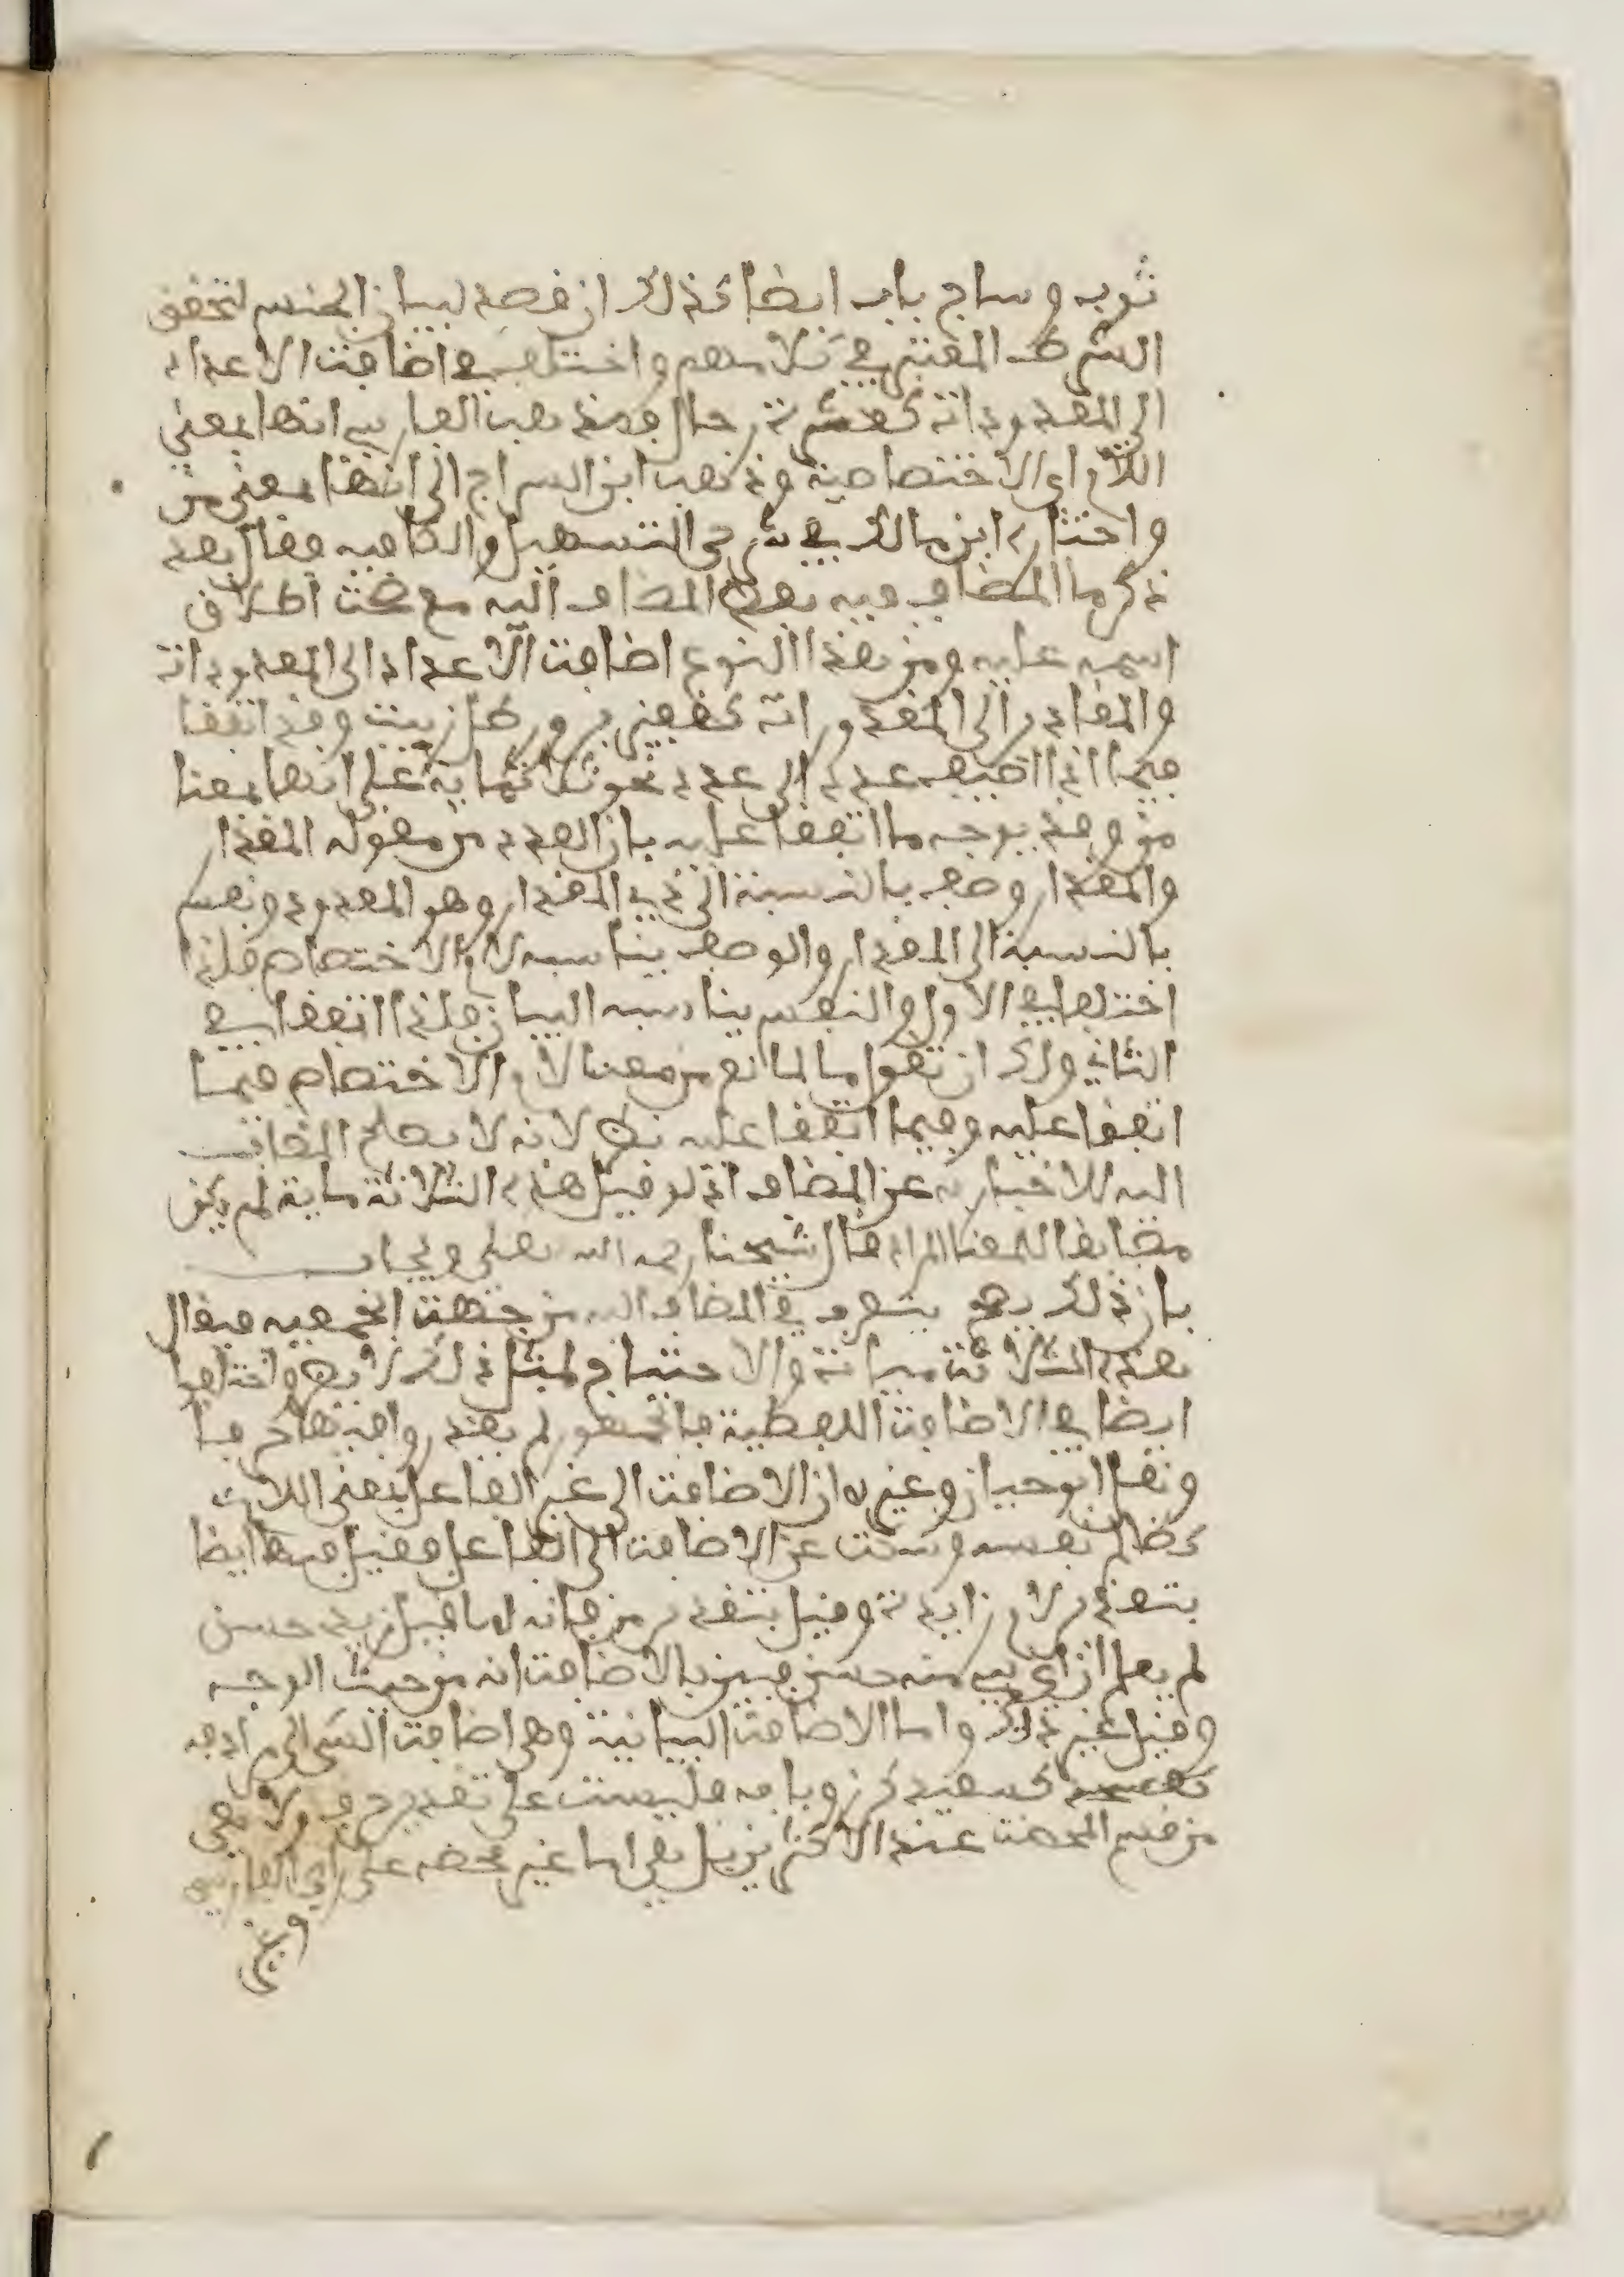 ثوب وساج باب ايضا كذلك ان قصد لبيان الجنس لتحقق
الشرط المعتبر في كلامهم واختلف في اضافت الاعداد
الى المعدودات كعشرة رجال فمذهب الفارسي انها بمعنى
اللام اي الاختصاصية وذهب ابن السراج الى انها بمعنى من
واختاره ابن مالك في شرحي التسهيل والكافيه فقال بعد
ذكر ما المضاف فيه بعض المضاف اليه مع صحت اطلاق
اسمه عليه ومن هذا النوع اضافت الاعداد الى المعدودات
والمقادر الى المقدورات كقفيز بر ورطل زيت وقد اتفقا
فيما اذا اضيف عدد الى عدد نحو ثلاثماية على انها بمعنا
من وقد يوجه ما اتفقا عليه بان العدد من مقوله المقدار
والمقدار وصف بالنسبة الى ذي المقدار وهو المعدود ونفس
بالنسبة الى المقدار والوصف يناسبه لام الاختصاص فلذا
اختلفا في الاول والنفس يناسبه البيان فلذا اتفقا في
الثاني ولك ان تقول ما المانع من معنا لام الاختصاص فيما
اتفقا عليه وفيما اتفقا عليه نظر لانه لا يصلح المضاف
اليه للاخبار به عن المضاف اذ لو قيل هذه الثلاثة ماية لم يكن
مطابقا للمعنا المراد قال شيخنا رحمه الله تعلى ويجاب
بان ذلك يتصرف في المضاف اليه من جهت الجمعيه فيقال
هذه الثلاثة مياتة والاحتياج لمثل ذلك لا يضر واختلفوا
ايضا في الاضافت اللفظية فالجمهور لم يقدروا فيها حرفا
ونقل ابو حيان وغيره ان الاضافت الى غير الفاعل بمعنى اللام
كظالم نفسه وسكت عن الاضافت الى الفاعل وقيل فيها ايضا
بتقدير لام زايدة وقيل بتقدير من فانه لما قيل زيد حسن
لم يعلم ان اي شيء منه حسن فبين بالاضافت انه من حيث الوجه
وقيل غير ذلك واما الاضافت البيانية وهي اضافت الشي الى مرادفه
كسعيد كرز وبابه فليست على تقدير حرف ولا هي
من قسم المحضت عند الاكثرين بل هي اما غير محضه على راي الفارسي